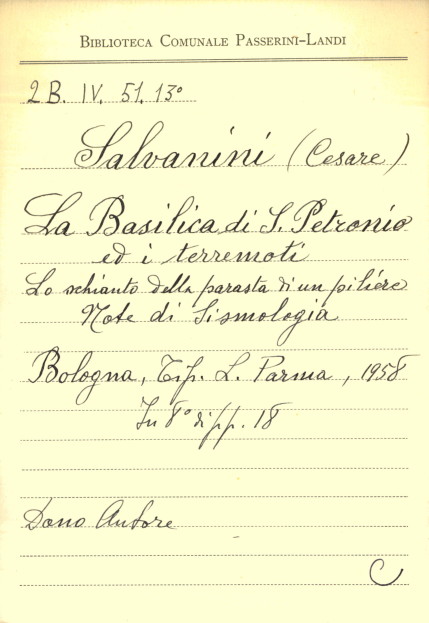 BIBLIOTECA COMUNALE PASSERINI-LANDI
2 B. IV. 51. 13°
Salvanini (Cesare)
La Basilica di S. Petronio
ed i terremoti
Lo schianto della parasta di un piliére
Note di Sismologia
Bologna, Tip. L. Parma, 1958
In 8° di pp. 18
Dono Autore
C